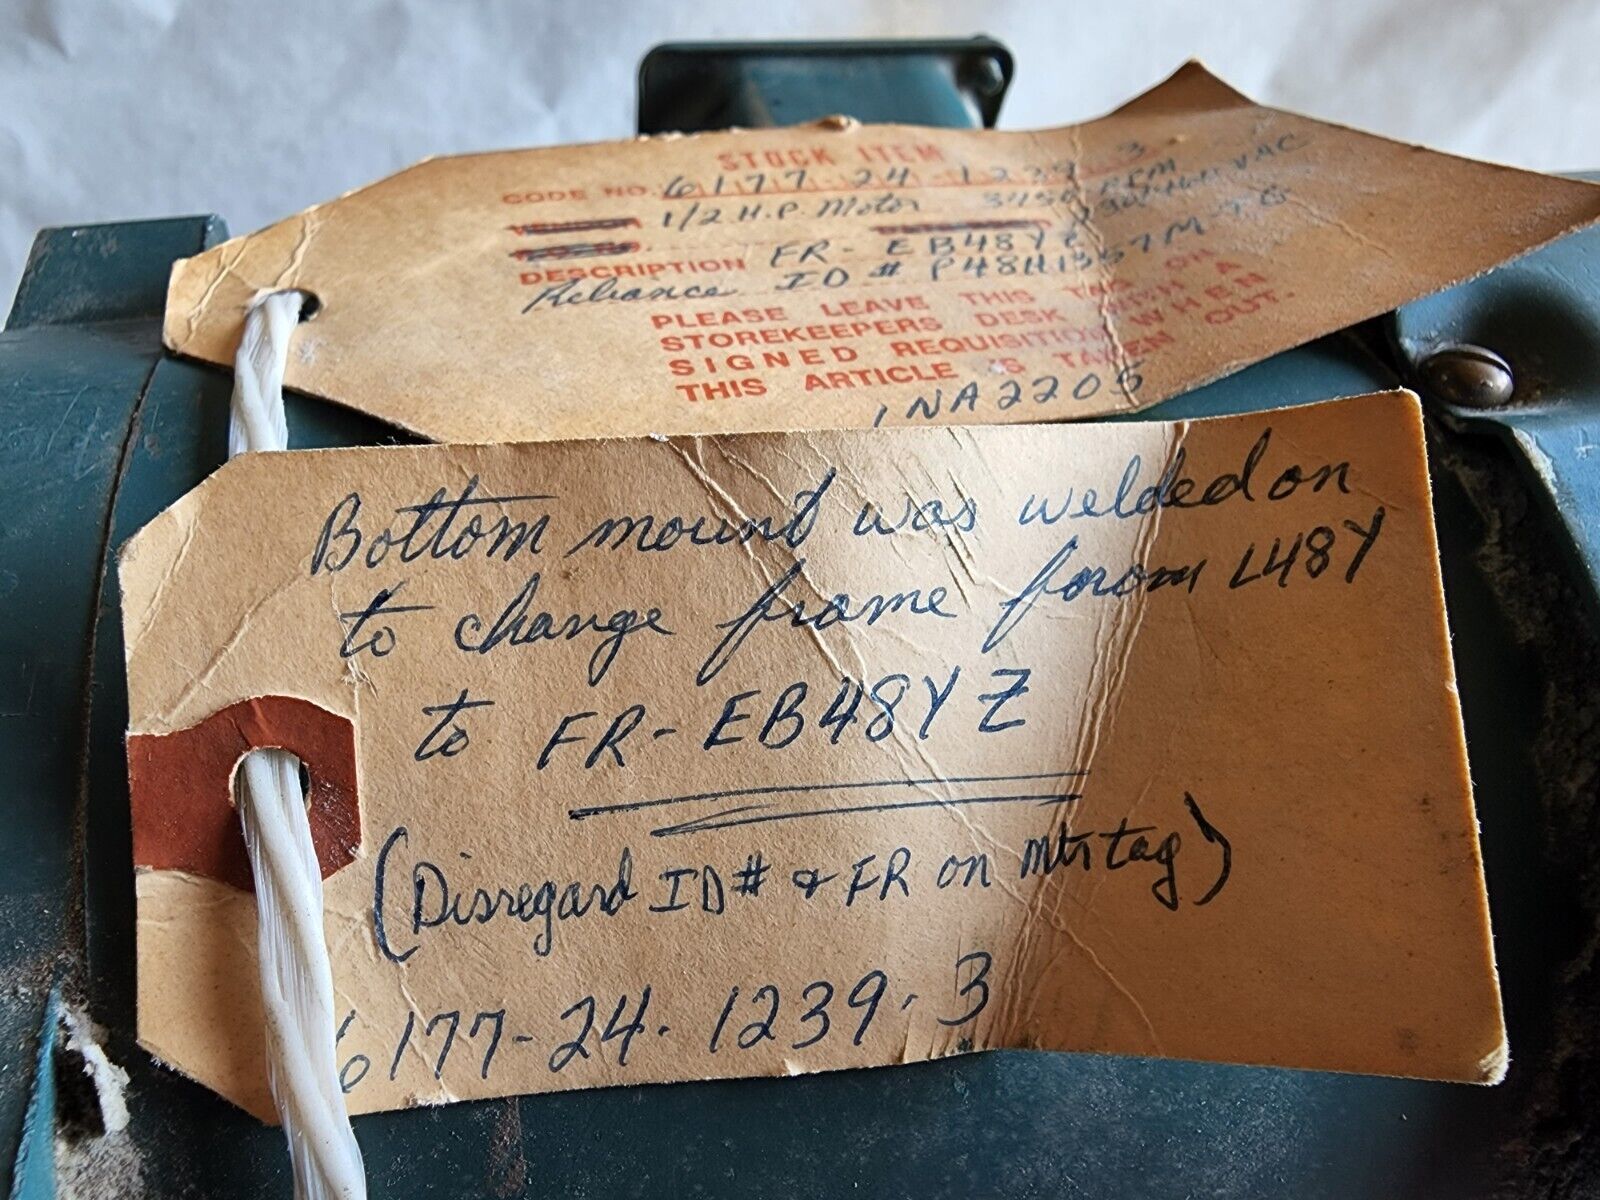 STOCK ITEM
CODE NO. 6177-24 1239-3
1/2 H.P. Motor 3450 RPM
230/460 VAC
DESCRIPTION FR- EB48YZ
Reliance ID # P48H1357M
PLEASE LEAVE THIS TAG ON
STOREKEEPERS DESK WITH A
SIGNED REQUISITION WHEN
THIS ARTICLE IS TAKEN OUT.
1NA2205
Bottom mount was welded on
to change frame from L48Y
to FR-EB48YZ
(Disregard ID# & FR on mtr tag)
6177-24-1239-3